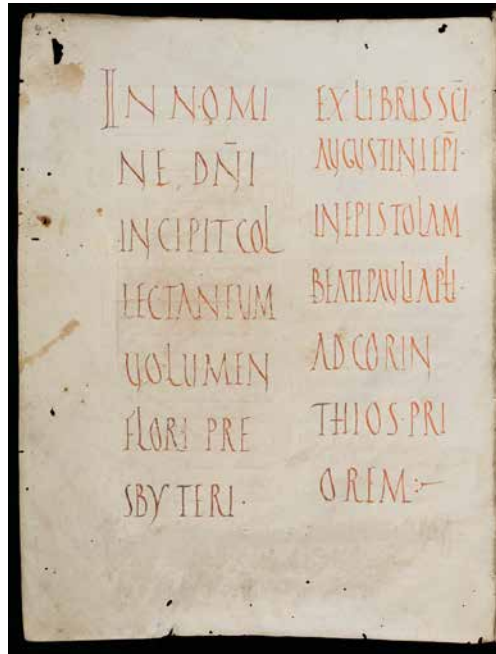 IN NOMI
NE DN̄I
INCIPIT COL
LECTANEUM
UOLUMEN
FLORI PRE
SBYTERI·
EX LIBRIS SC̄I
AUGUSTINI EP̄I·
IN EPISTOLAM
BEATI PAULI APŁI·
AD CORIN
THIOS·PRI
OREM:~